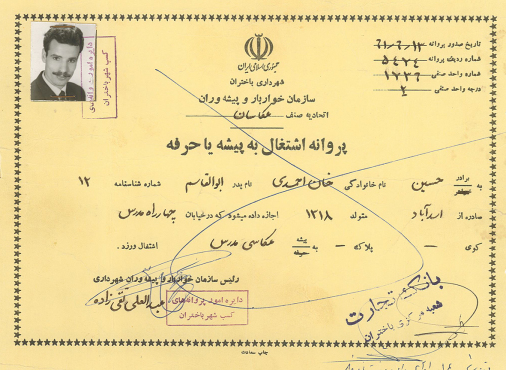 تاریخ صدور پروانه ۶۱/۶/۱۳
شماره ردیف پروانه ۵۴۷۴
شماره واحد صنفی ۱۷۳۶
درجه واحد صنفی ۲
جمهوری اسلامی ایران
شهرداری باختران
سازمان خواربار و پیشه وران
اتحادیه صنف عکاسان
دایره امور پروانه‌های
کسب شهر باختران
پروانه اشتغال به پیشه یا حرفه
به برادر حسین نام خانوادگی خان احمدی نام پدر ابوالقاسم شماره شناسنامه ۱۲
صادره از اسدآباد متولد ۱۳۱۸ اجازه داده میشود که در خیابان چهارراه مدرس
کوی — پلاک — به پیشه حرفه عکاسی مدرس اشتغال ورزد.
رئیس سازمان خواربار و پیشه وران شهرداری
عبدالعلی تقی زاده
دایره امور پروانه‌های
کسب شهر باختران
بانک تجارت
شعبه مرکزی باختران
چاپ سعادت